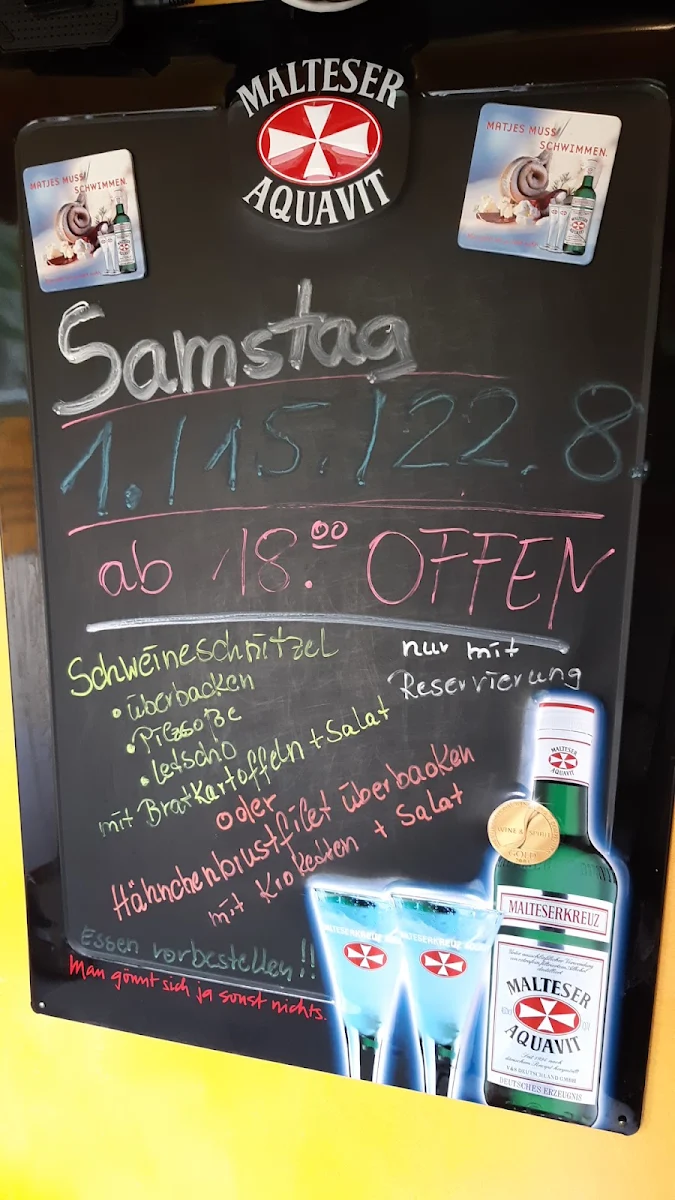 MALTESER
AQUAVIT
MATJES MUSS
SCHWIMMEN.
MATJES MUSS
SCHWIMMEN.
Samstag
1./15./22.8.
ab 18.⁰⁰ OFFEN
Schweineschnitzel
• überbacken
• Pilzsoße
• Letscho
mit Bratkartoffeln + Salat
nur mit
Reservierung
oder
Hähnchenbrustfilet überbacken
mit Kroketten + Salat
Essen vorbestellen!!
Man gönnt sich ja sonst nichts.
MALTESER
AQUAVIT
WINE & SPIRIT
MALTESERKREUZ
MALTESER
AQUAVIT
V&S DEUTSCHLAND GMBH
DEUTSCHES ERZEUGNIS